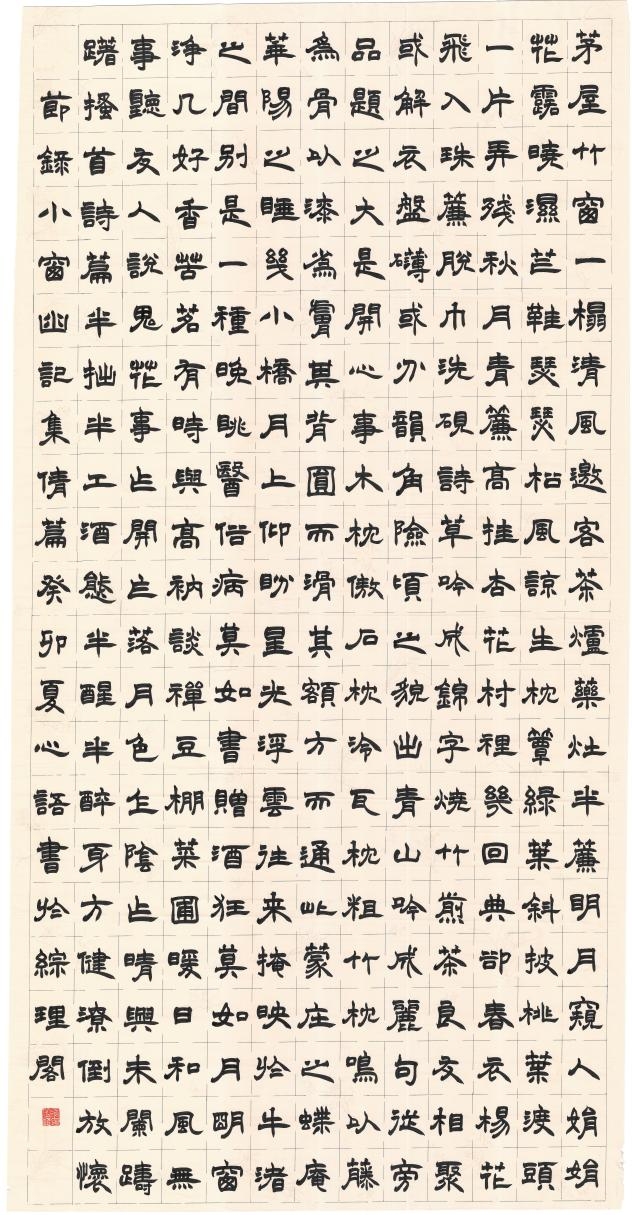 茅屋竹窗一榻清風邀客茶爐藥灶半簾明月窺人娟娟
花露曉濕芒鞋瑟瑟松風諒生枕簟綠葉斜披桃葉渡頭
一片弄殘秋月青簾高挂杏花村裡幾回典卻春衣楊花
飛入珠簾脫巾洗硯詩草吟成錦字燒竹煎茶良友相聚
或解衣盤礴或分韻角險頃之貌出青山吟成麗句從旁
品題之大是開心事木枕傲石枕冷瓦枕粗竹枕鳴以藤
為骨以漆為膚其背圓而滑其額方而通此蒙庄之蝶庵
華陽之睡幾小橋月上仰盼星光浮雲往来掩映於牛渚
之間别是一種晚眺醫俗病莫如書贈酒狂莫如月明窗
淨几好香苦茗有時與高衲談禪豆棚菜圃暖日和風無
事聽友人說鬼花事乍開乍落月色乍陰乍晴興未闌躊
躇搔首詩篇半拙半工酒態半醒半醉身方健潦倒放懷
節錄小窗幽記集倩篇癸卯夏心語書於綜理閣